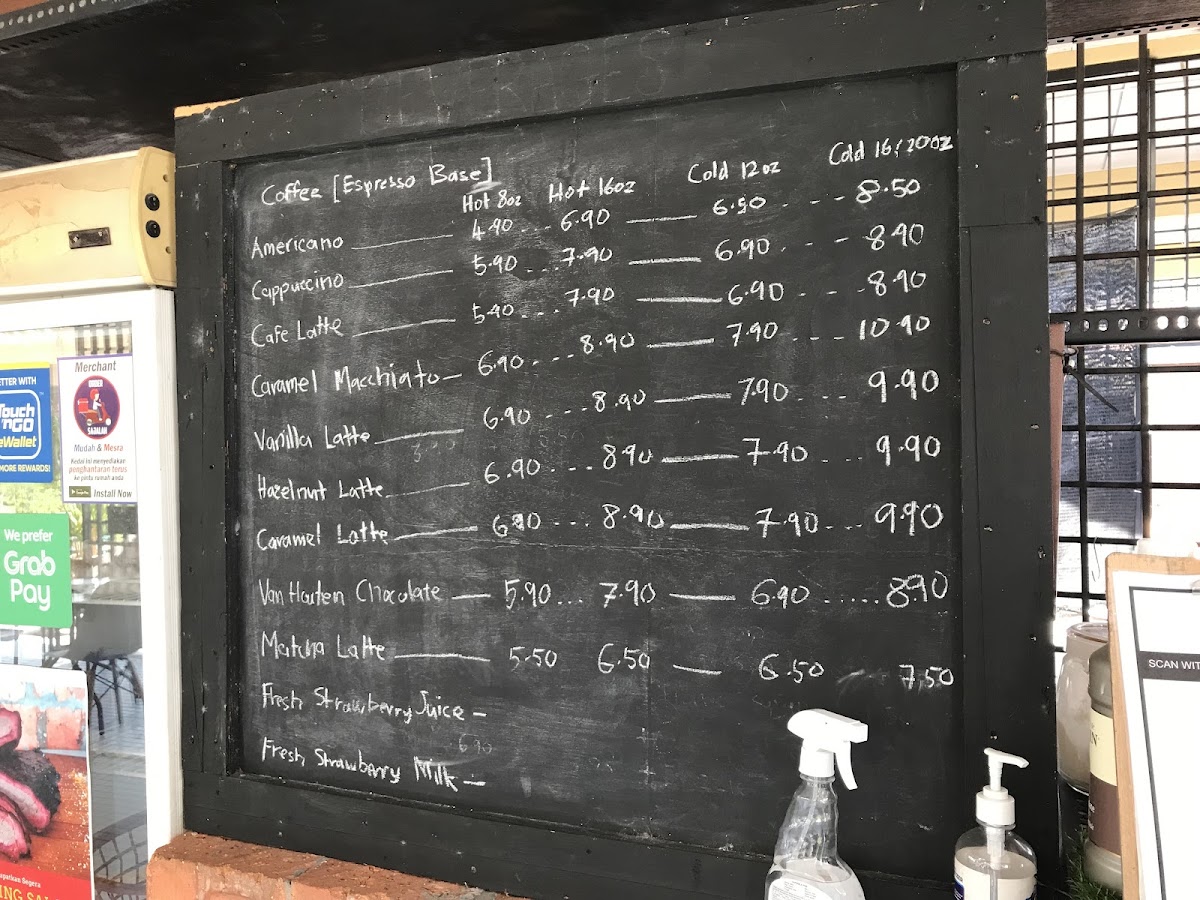 Coffee [Espresso Base]
Hot 8oz Hot 16oz Cold 12oz Cold 16/20oz
Americano 4.90 ... 6.90 6.50 ... 8.50
Cappuccino 5.90 ... 7.90 6.90 ... 8.90
Cafe Latte 5.90 ... 7.90 6.90 ... 8.90
Caramel Macchiato 6.90 ... 8.90 7.90 ... 10.90
Vanilla Latte 6.90 ... 8.90 7.90 ... 9.90
Hazelnut Latte 6.90 ... 8.90 7.90 ... 9.90
Caramel Latte 6.90 ... 8.90 7.90 ... 9.90
Van Houten Chocolate 5.90 ... 7.90 6.90 ..... 8.90
Matcha Latte 5.50 6.50 6.50 7.50
Fresh Strawberry Juice -
Fresh Strawberry Milk -
ETTER WITH
Touch
'nGO
eWallet
MORE REWARDS!
Merchant
Mudah & Mesra
Kedai ini menyediakan
penghantaran terus
ke pintu rumah anda
Install Now
We prefer
Grab
Pay
SCAN WIT